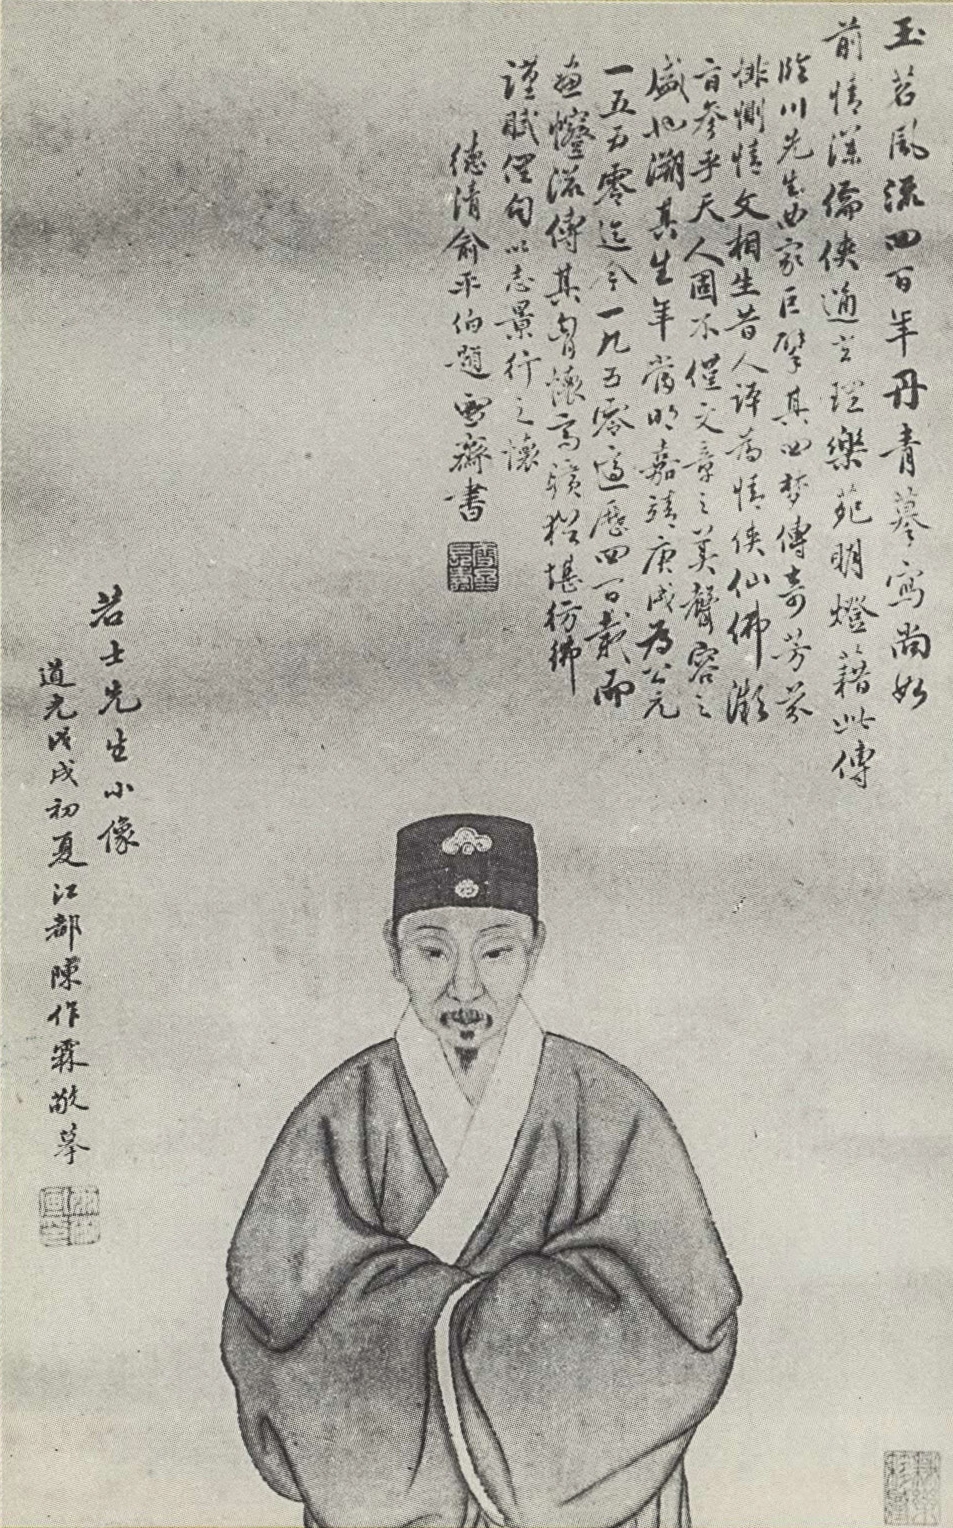 玉茗風流四百年丹青摹寫尚如
前情深倫俠通之理樂苑明燈藉此傳
臨川先生曲家巨擘其四夢傳奇芳芬
悱惻情文相生昔人評為情俠仙佛
旨參乎天人固不僅文章之美聲容之
盛也溯其生年當明嘉靖庚戌為公元
一五五零迄今一九五零適歷四百載而
畫流傳其胸懷高曠猶堪彷彿
謹賦俚句以志景行之懷
德清俞平伯題雪齋書
若士先生小像
道光戊戌初夏江都陳作霖敬摹